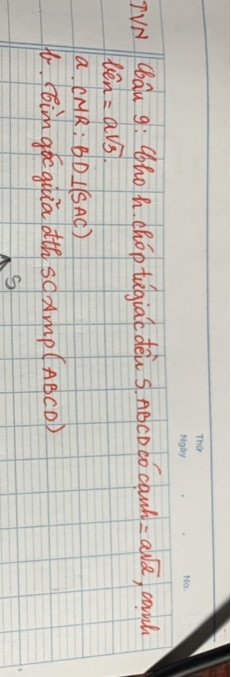 Thứ
Ngày . . No.
TVN Câu 9: Cho h. chóp tứ giác đều S.ABCD có cạnh = a√2, cạnh
bên = a√5.
a. CMR: BD⊥(SAC)
b. Tìm góc giữa đth SC & mp(ABCD)
S